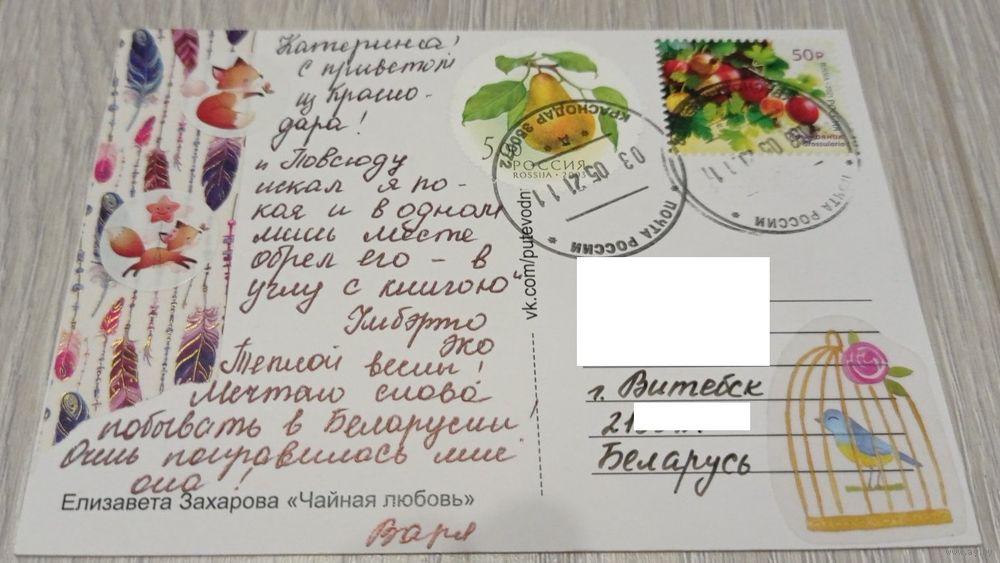 Катерина!
с приветом
из Красно-
дара!
"Повсюду
искал я по-
коя и в одном
лишь месте
обрел его - в
углу с книгою"
Умбэрто
Эко
Теплой весны!
Мечтаю снова
побывать в Беларусии
Очень понравилась мне
она!
Варя
Елизавета Захарова «Чайная любовь»
vk.com/putevodn
5
РОССИЯ
ROSSIJA · 2003
50₽
Grossularia
КРАСНОДАР 350072
03 05 21 11
ПОЧТА РОССИИ
ПОЧТА РОССИИ
г. Витебск
21
Беларусь